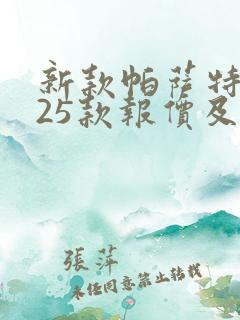 新款帕萨特
25款報價及
張萍
未经同意禁止转载